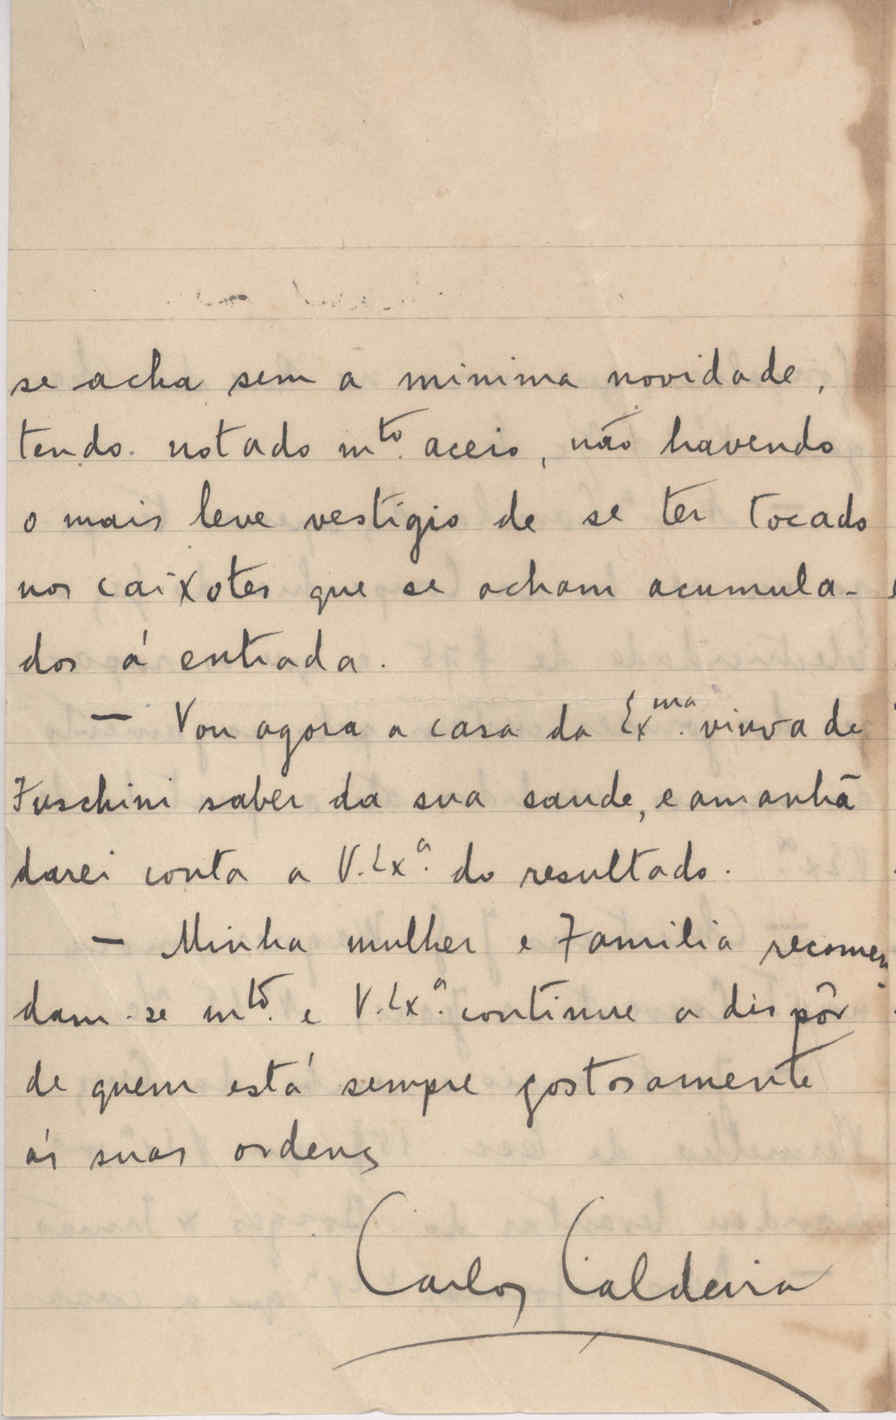 se acha sem a minima novidade,
tendo notado mto. aceio, não havendo
o mais leve vestigio de se ter tocado
nos caixotes que se acham acumula-
dos á entrada.
— Vou agora a casa da Exma. viuva de
Fuschini saber da sua saude, e amanhã
darei conta a V. Exa. do resultado.
— Minha mulher e Familia recomen
dam-se mto. e V. Exa. continue a dispôr
de quem está sempre gostosamente
ás suas ordens
Carlos Caldeira